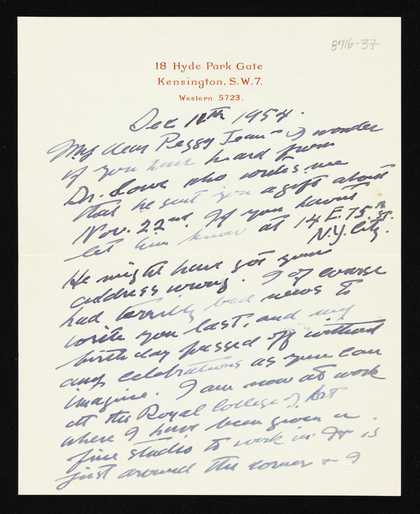 8716-37
18 Hyde Park Gate
Kensington, S.W.7.
Western 5723.
Dec 12th 1954.
My dear Peggy Jean - I wonder
if you have heard from
Dr. Lowe who writes me
that he sent you a gift about
Nov. 22nd. If you haven't
let him know at 14 E. 75th St.
N.Y. City.
He might have got your
address wrong. I of course
had terribly bad news to
write you last, and my
birthday passed off without
any celebrations as you can
imagine. I am now at work
at the Royal College of Art
where I have been given a
fine studio to work in. It is
just around the corner & I